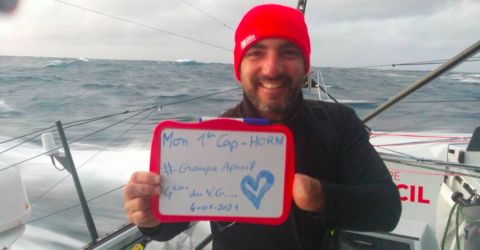 Mon 1er Cap-HORN
#Groupe Apicil
4ème du V.G....
4-01-2021
CIL